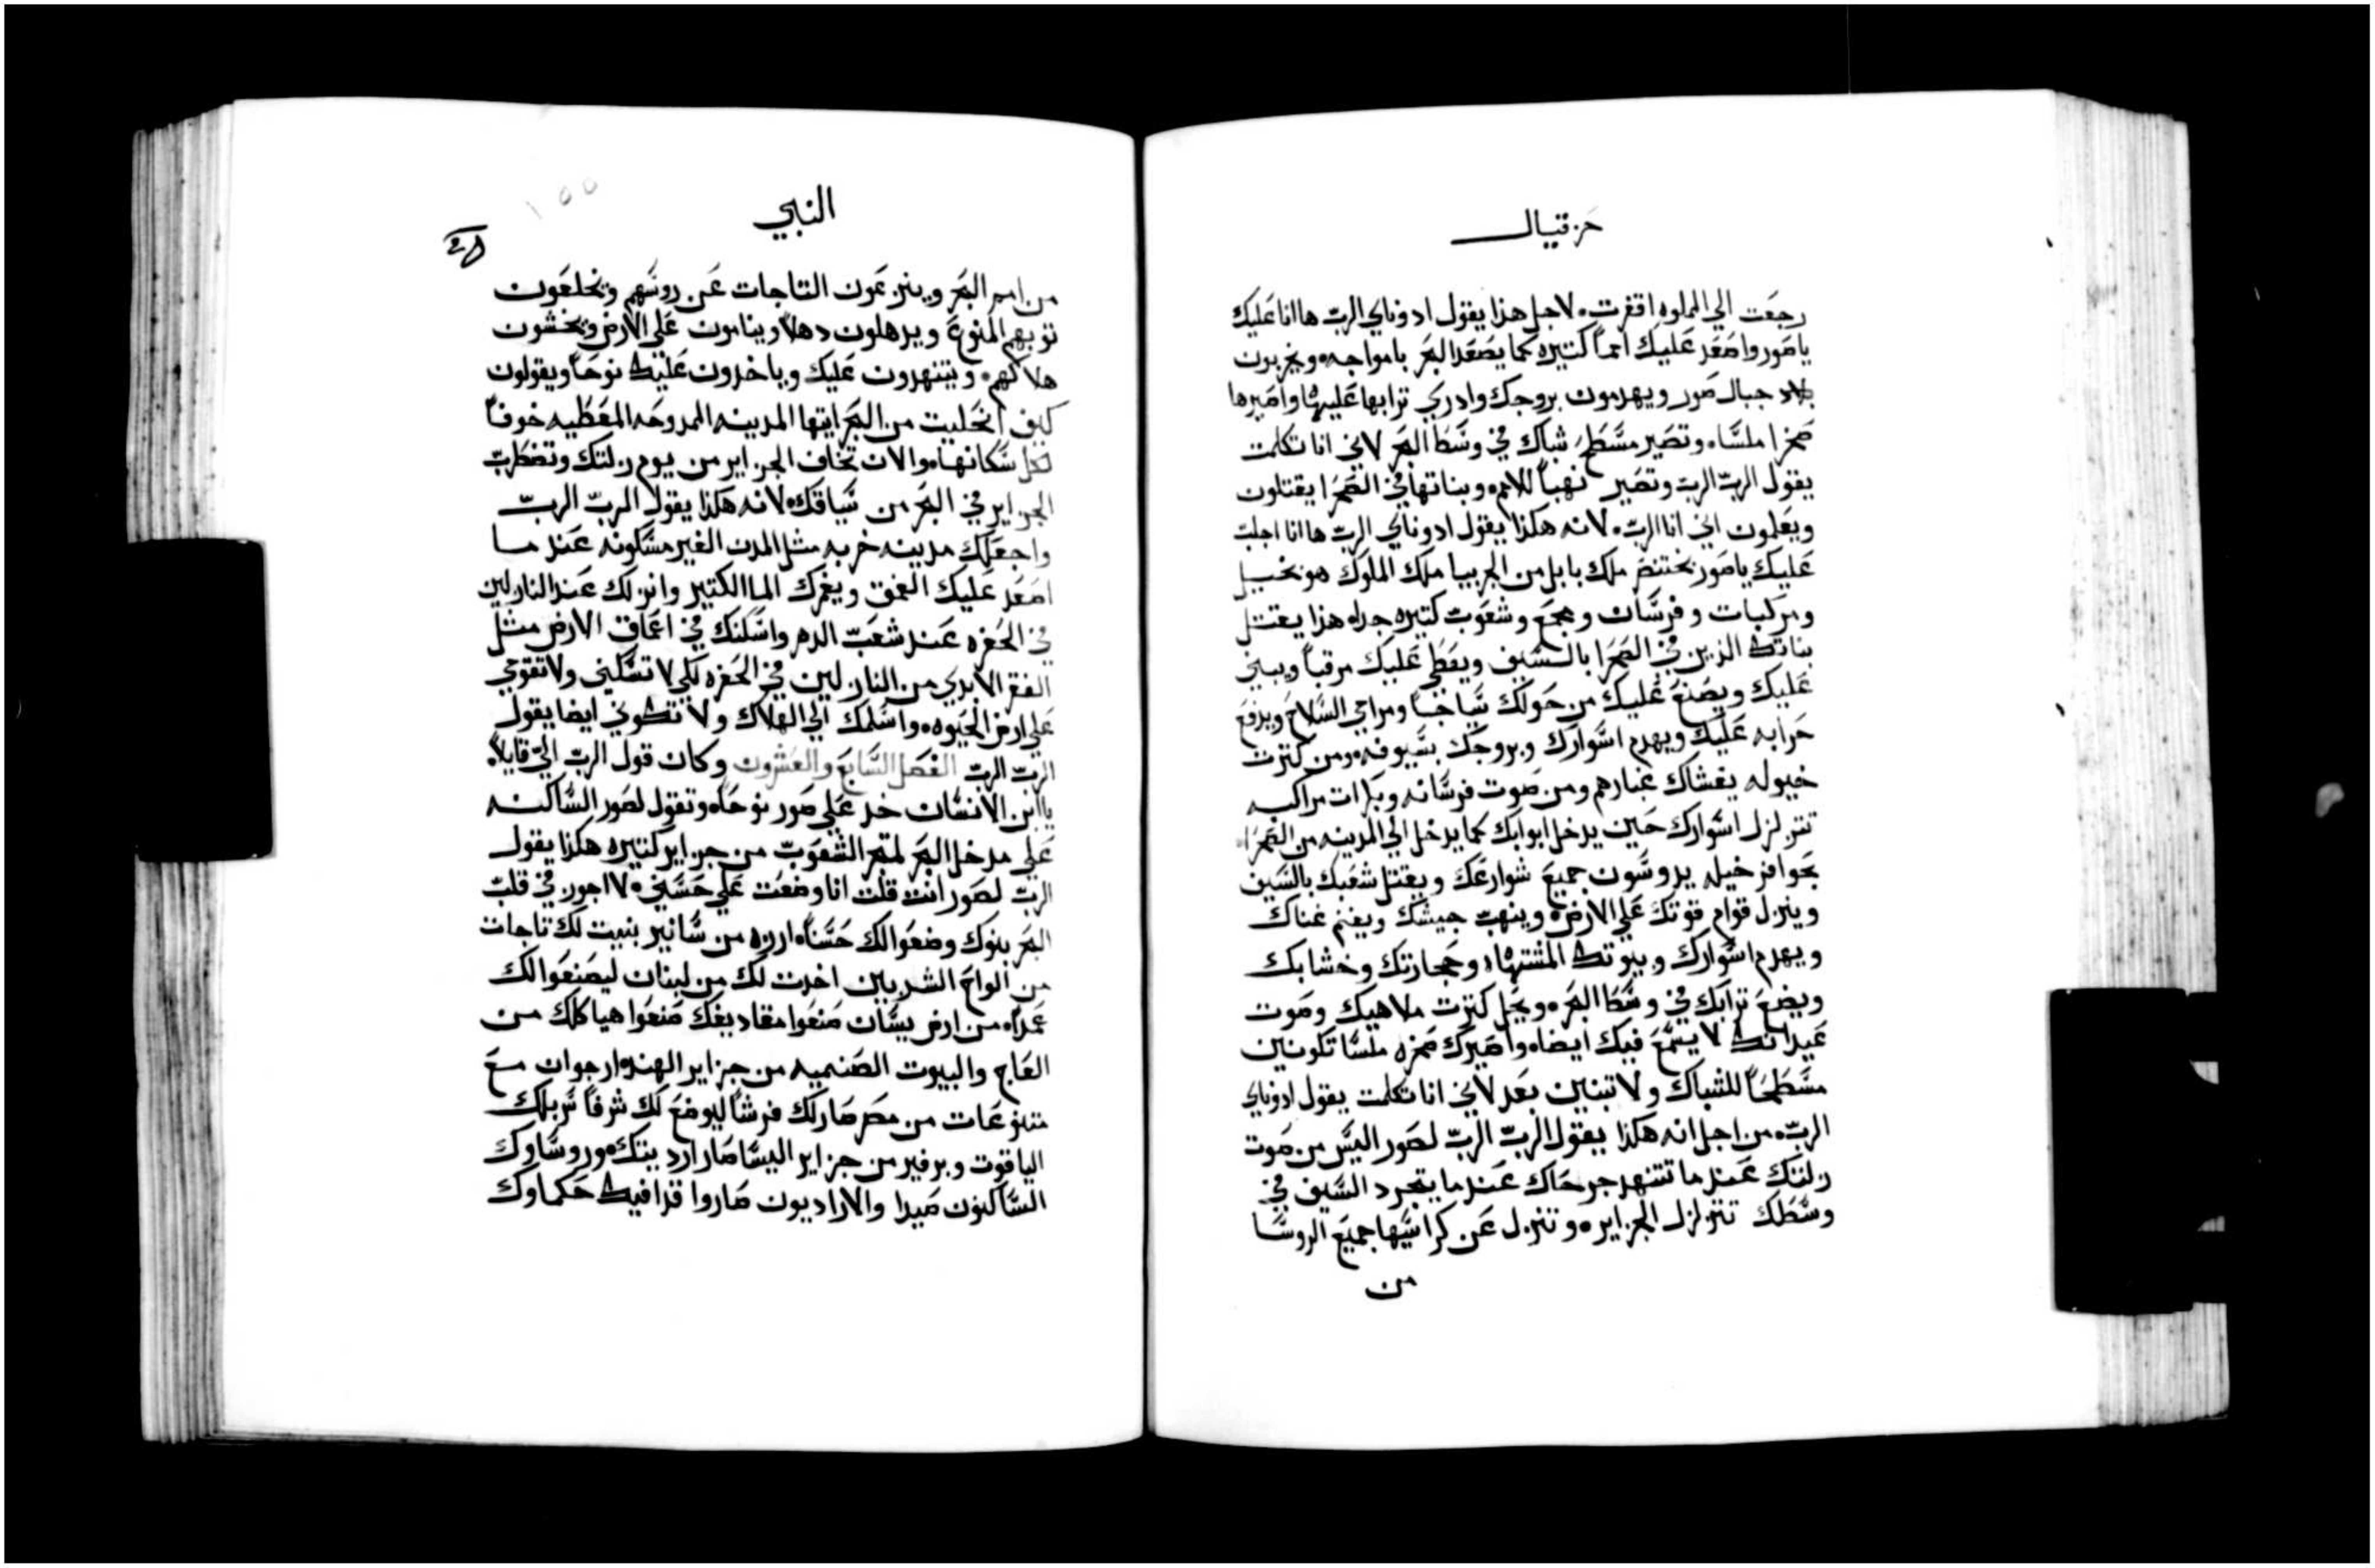 حزقيال
رجعت الي المملوه اقفرت. لاجل هذا يقول ادوناي الرب هاانا عليك
ياصور واصعد عليك امماً كتيره كما يصعد البحر بامواجه. ويخربون
جبال صور ويهدمون بروجك وادري ترابها عليها واصيرها
صخرا ملسا. وتصير مسطح شباك في وسط البحر لاني انا تكلمت
يقول الرب الرب وتصير نهباً للامم. وبناتها في الصحرا يقتلون
ويعلمون اني انا الرب. لانه هكذا يقول ادوناي الرب هاانا اجلب
عليك ياصور بختنصر ملك بابل من الجربيا ملك الملوك هو بخيل
ومركبات وفرسان ومجمع وشعوب كتيره جدا. هذا يقتل
بناتك الذين في الصحرا بالسيف ويعطي عليك مرقباً ويبني
عليك ويصنع عليك من حولك سياجاً ومراحي السلاح ويرفع
حرابه عليك ويهدم اسوارك وبروجك بسيوفه. ومن كترت
خيوله يغشاك غبارهم ومن صوت فرسانه وبكرات مراكبه
تتزلزل اسوارك حين يدخل ابوابك كما يدخل الي المدينه من الصحرا.
بحوافر خيله يدوسون جميع شوارعك ويقتل شعبك بالسيف
وينزل قوام قوتك علي الارض. وينهب جيشك ويغنم غناك
ويهدم اسوارك وبيوتك المشتهاه وحجارتك وخشابك
ويضع ترابك في وسط البحر. ويبطل كترت ملاهيك وصوت
عيدانك لا يسمع فيك ايضا. واصيرك صخره ملسا تكونين
مسطحاً للشباك ولا تبنين بعد لاني انا تكلمت يقول ادوناي
الرب. من اجل انه هكذا يقول الرب الرب لصور اليس من صوت
زلتك عندما تتنهد جرحاك عندما يتجرد السيف في
وسطك تتزلزل الجزاير. وتنزل عن كراسيها جميع الروسا
من
النبي
١٥٥
من امم البحر وينزعون التاجات عن روسهم ويخلعون
توبهم المنوع ويدهلون دهلاً وينامون علي الارض ويخشون
هلاكهم. ويتنهدون عليك وياخدون عليك نوحاً ويقولون
كيف انحليت من البحر ايتها المدينه الممدوحه المعطيه خوفاً
لكل سكانها. والان تخاف الجزاير من يوم زلتك وتضطرب
الجزاير في البحر من سياقك. لانه هكذا يقول الرب الرب
واجعلك مدينه خربه مثل المدن الغير مسكونه عند ما
اصعد عليك العمق ويغمرك الما الكتير وانزلك عند النازلين
في الحفره عند شعب الدهر واسكنك في اعماق الارض مثل
القفر الابدي من النازلين في الحفره لكي لا تسكني ولا تقومي
علي ارض الحيوه. واسلمك الي الهلاك ولا تكوني ايضا يقول
الرب الرب الفصل السابع والعشرون وكان قول الرب الي قايلاً.
ياابن الانسان خد علي صور نوحا. وتقول لصور الساكنه
علي مدخل البحر لمتجر الشعوب من جزاير كتيره هكذا يقول
الرب لصور انت قلت انا وضعت علي حسني. لااجور في قلب
البحر بنوك وضعوا لك حسناً. ارزه من سانير بنيت لك تاجات
من الواح الشربين اخدت لك من لبنان ليصنعوا لك
عمدا. من ارض بيسان صنعوا مقاديفك صنعوا هياكلك من
العاج والبيوت الصنميه من جزاير الهند. ارجوان مع
متنوعات من مصر صار لك فرشاً ليوضع لك شرفاً سربلك
الياقوت وبرفير من جزاير اليسا صار ارديتك. وروساوك
الساكنون صيدا والاراديون صاروا قدافيك حكماوك